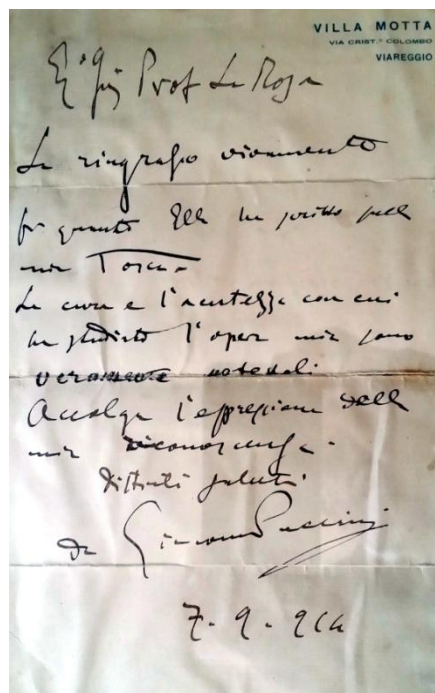 VILLA MOTTA
VIA CRIST.º COLOMBO
VIAREGGIO
Prof La Rosa
La ringrazio vivamente
per quanto Ella ha scritto sulla
mia Tosca
La cura e l'acutezza con cui
ha studiato l'opera mia sono
veramente notevoli
Accolga l'espressione della
mia riconoscenza.
Distinti saluti
da Giacomo Puccini
7. 9.